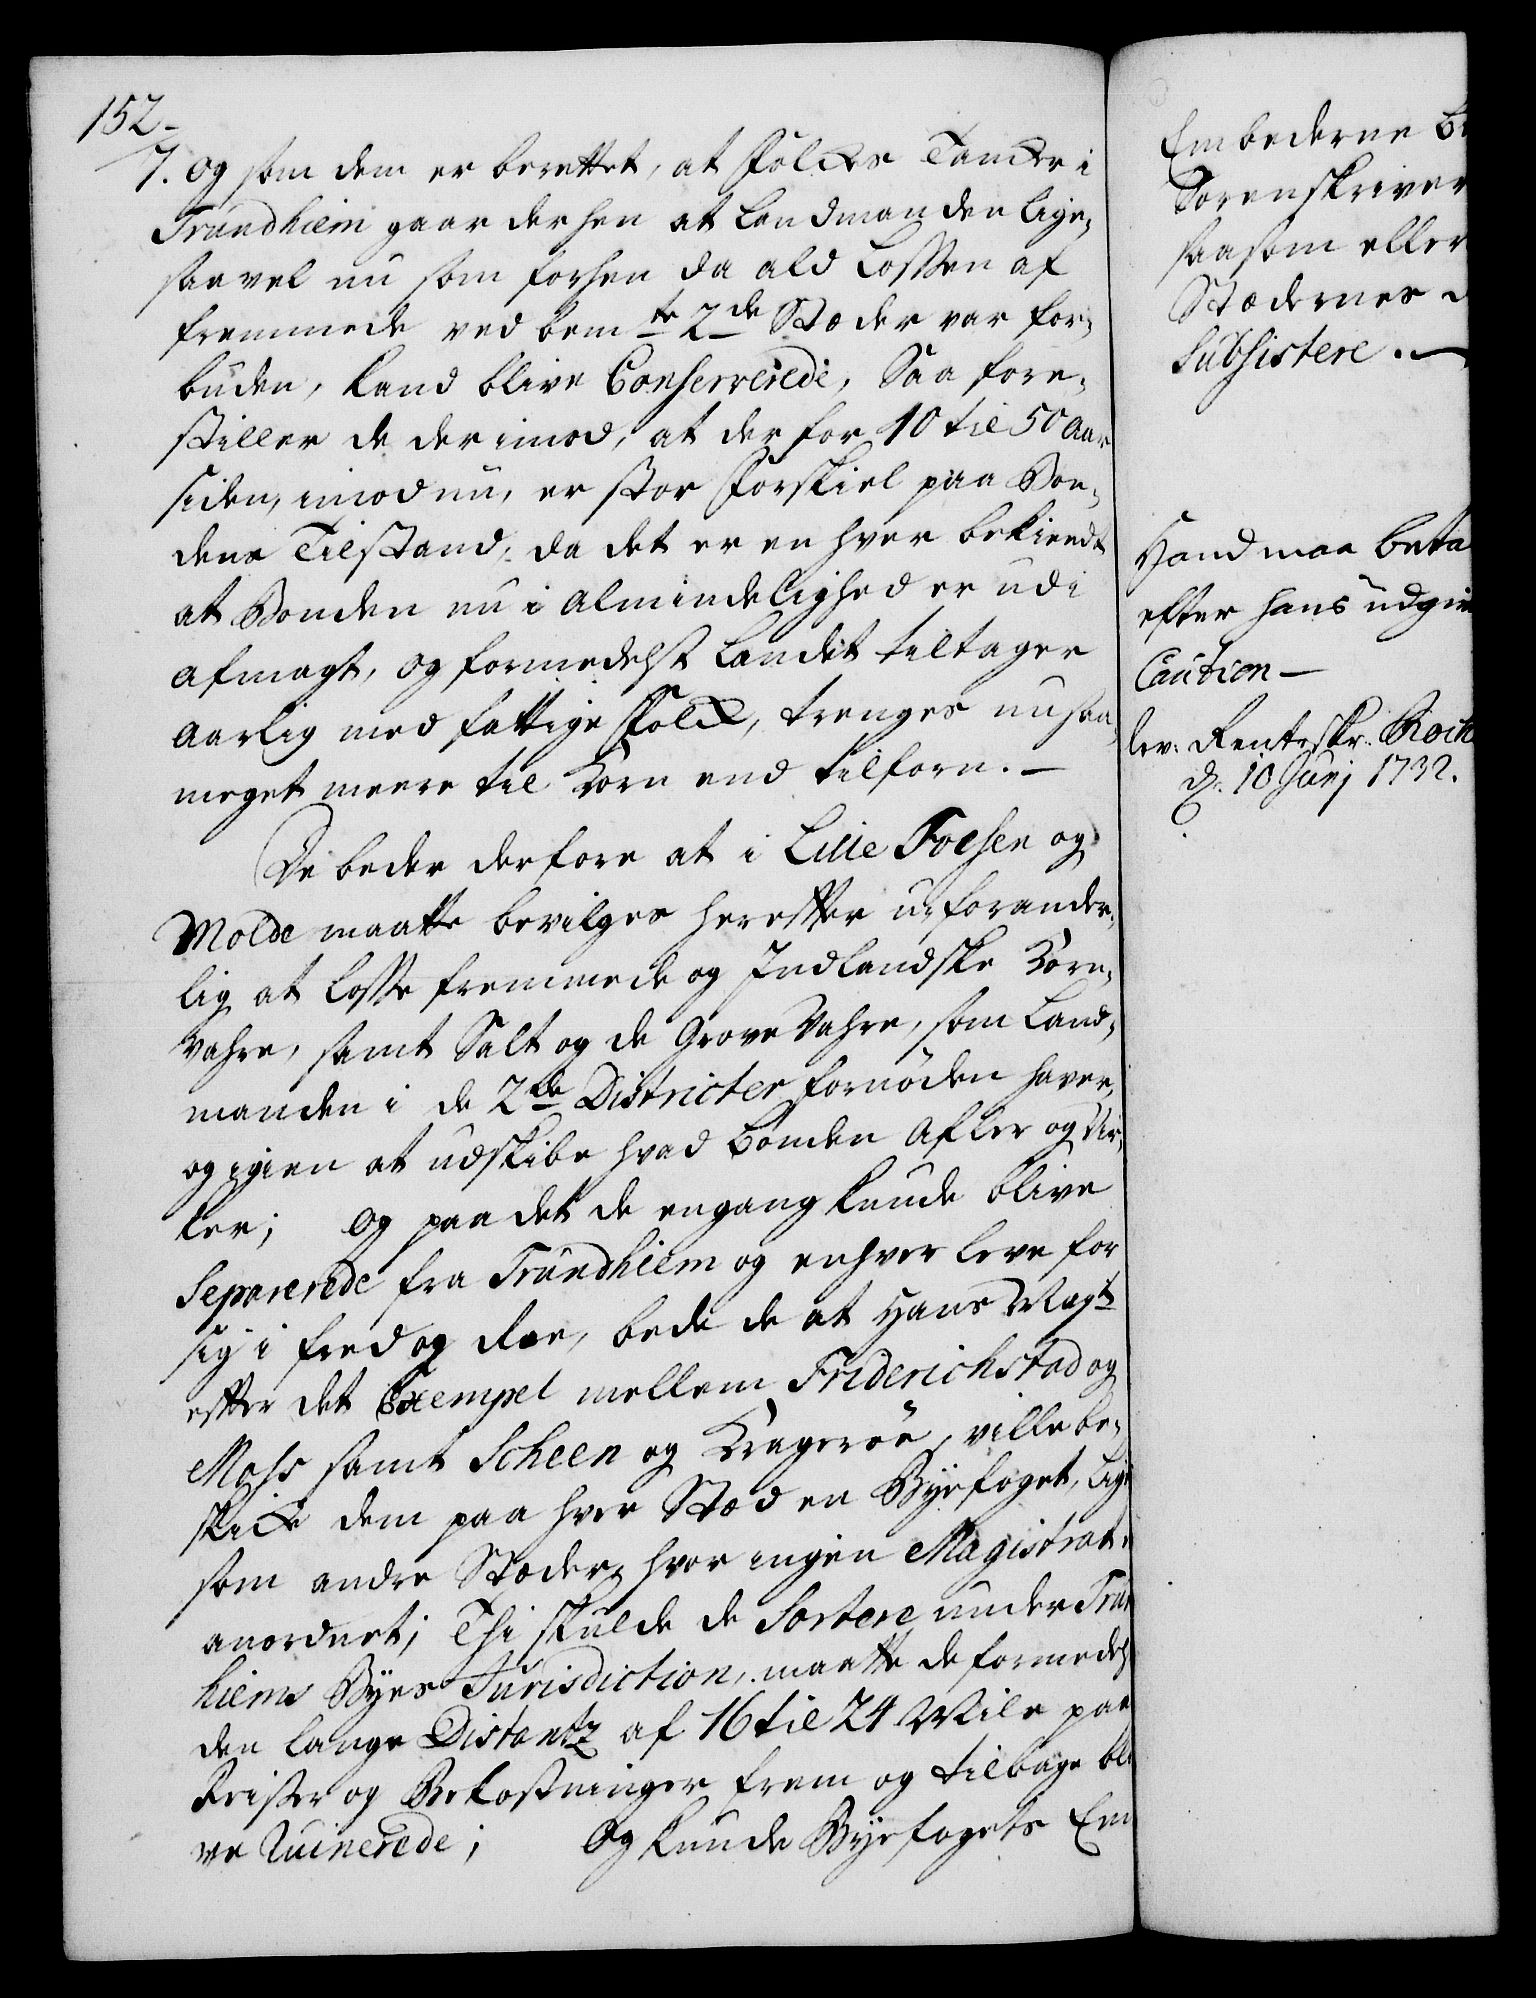 152.
7. Og som dem er berettet, at Folckes Tancker i
Trundhiem gaar der hen at Landmanden lige¬
saavel nu som forhen da ald Lossen af
fremmede ved bemte 2de Stæder var for¬
buden, kand blive Conserverede, Saa fore¬
stiller de der imod, at der for 10 til 50 Aar
siden, imod nu, er stor Forskiel paa Bon¬
dens Tilstand, da det er en hver bekiendt
at Bonden nu i Almindelighed er udi
afmagt, og formedelst Landet tiltager
Aarlig med fattige Folck, trenges nu saa
meget meere til Korn end tilforn. —
De beder derfore at i Lille Foesen og
Molde maatte bevilges herefter uforander¬
lig at losse fremmede og Indlandske Korn¬
vahre, samt Salt og de Grove Vahre, som Land¬
manden i de 2de Districter fornøden haver,
og igien at udskibe hvad Bonden Afler og Vir¬
ker; Og paa det de engang kunde blive
Separerede fra Trundhiem og enhver leve for
sig i fred og Roe, bede de at Hans Mayts
efter det Exempel mellem Friderichstad og
Moss samt Scheen og Kragerøe, ville be¬
skicke dem paa hver Stæd en Byefoget, lige
som andre Stæder, hvor ingen Magistrat er
anordnet; Thi skulde de Sortere under Trun
hiems Byes Jurisdiction, maatte de formedelst
den lange Distantz af 16 til 24 Mile paa
Reiser og Bekostninger frem og tilbage bli
ve Ruinerede; Og kunde Byefogets Em
Embederne
Sorenskriver
saasom eller
Stædernes
Subsistere. —
Hand maa beta
efter hans udgiv
Caution —
lev: Renteskr:
d: 10 Junj 1732.